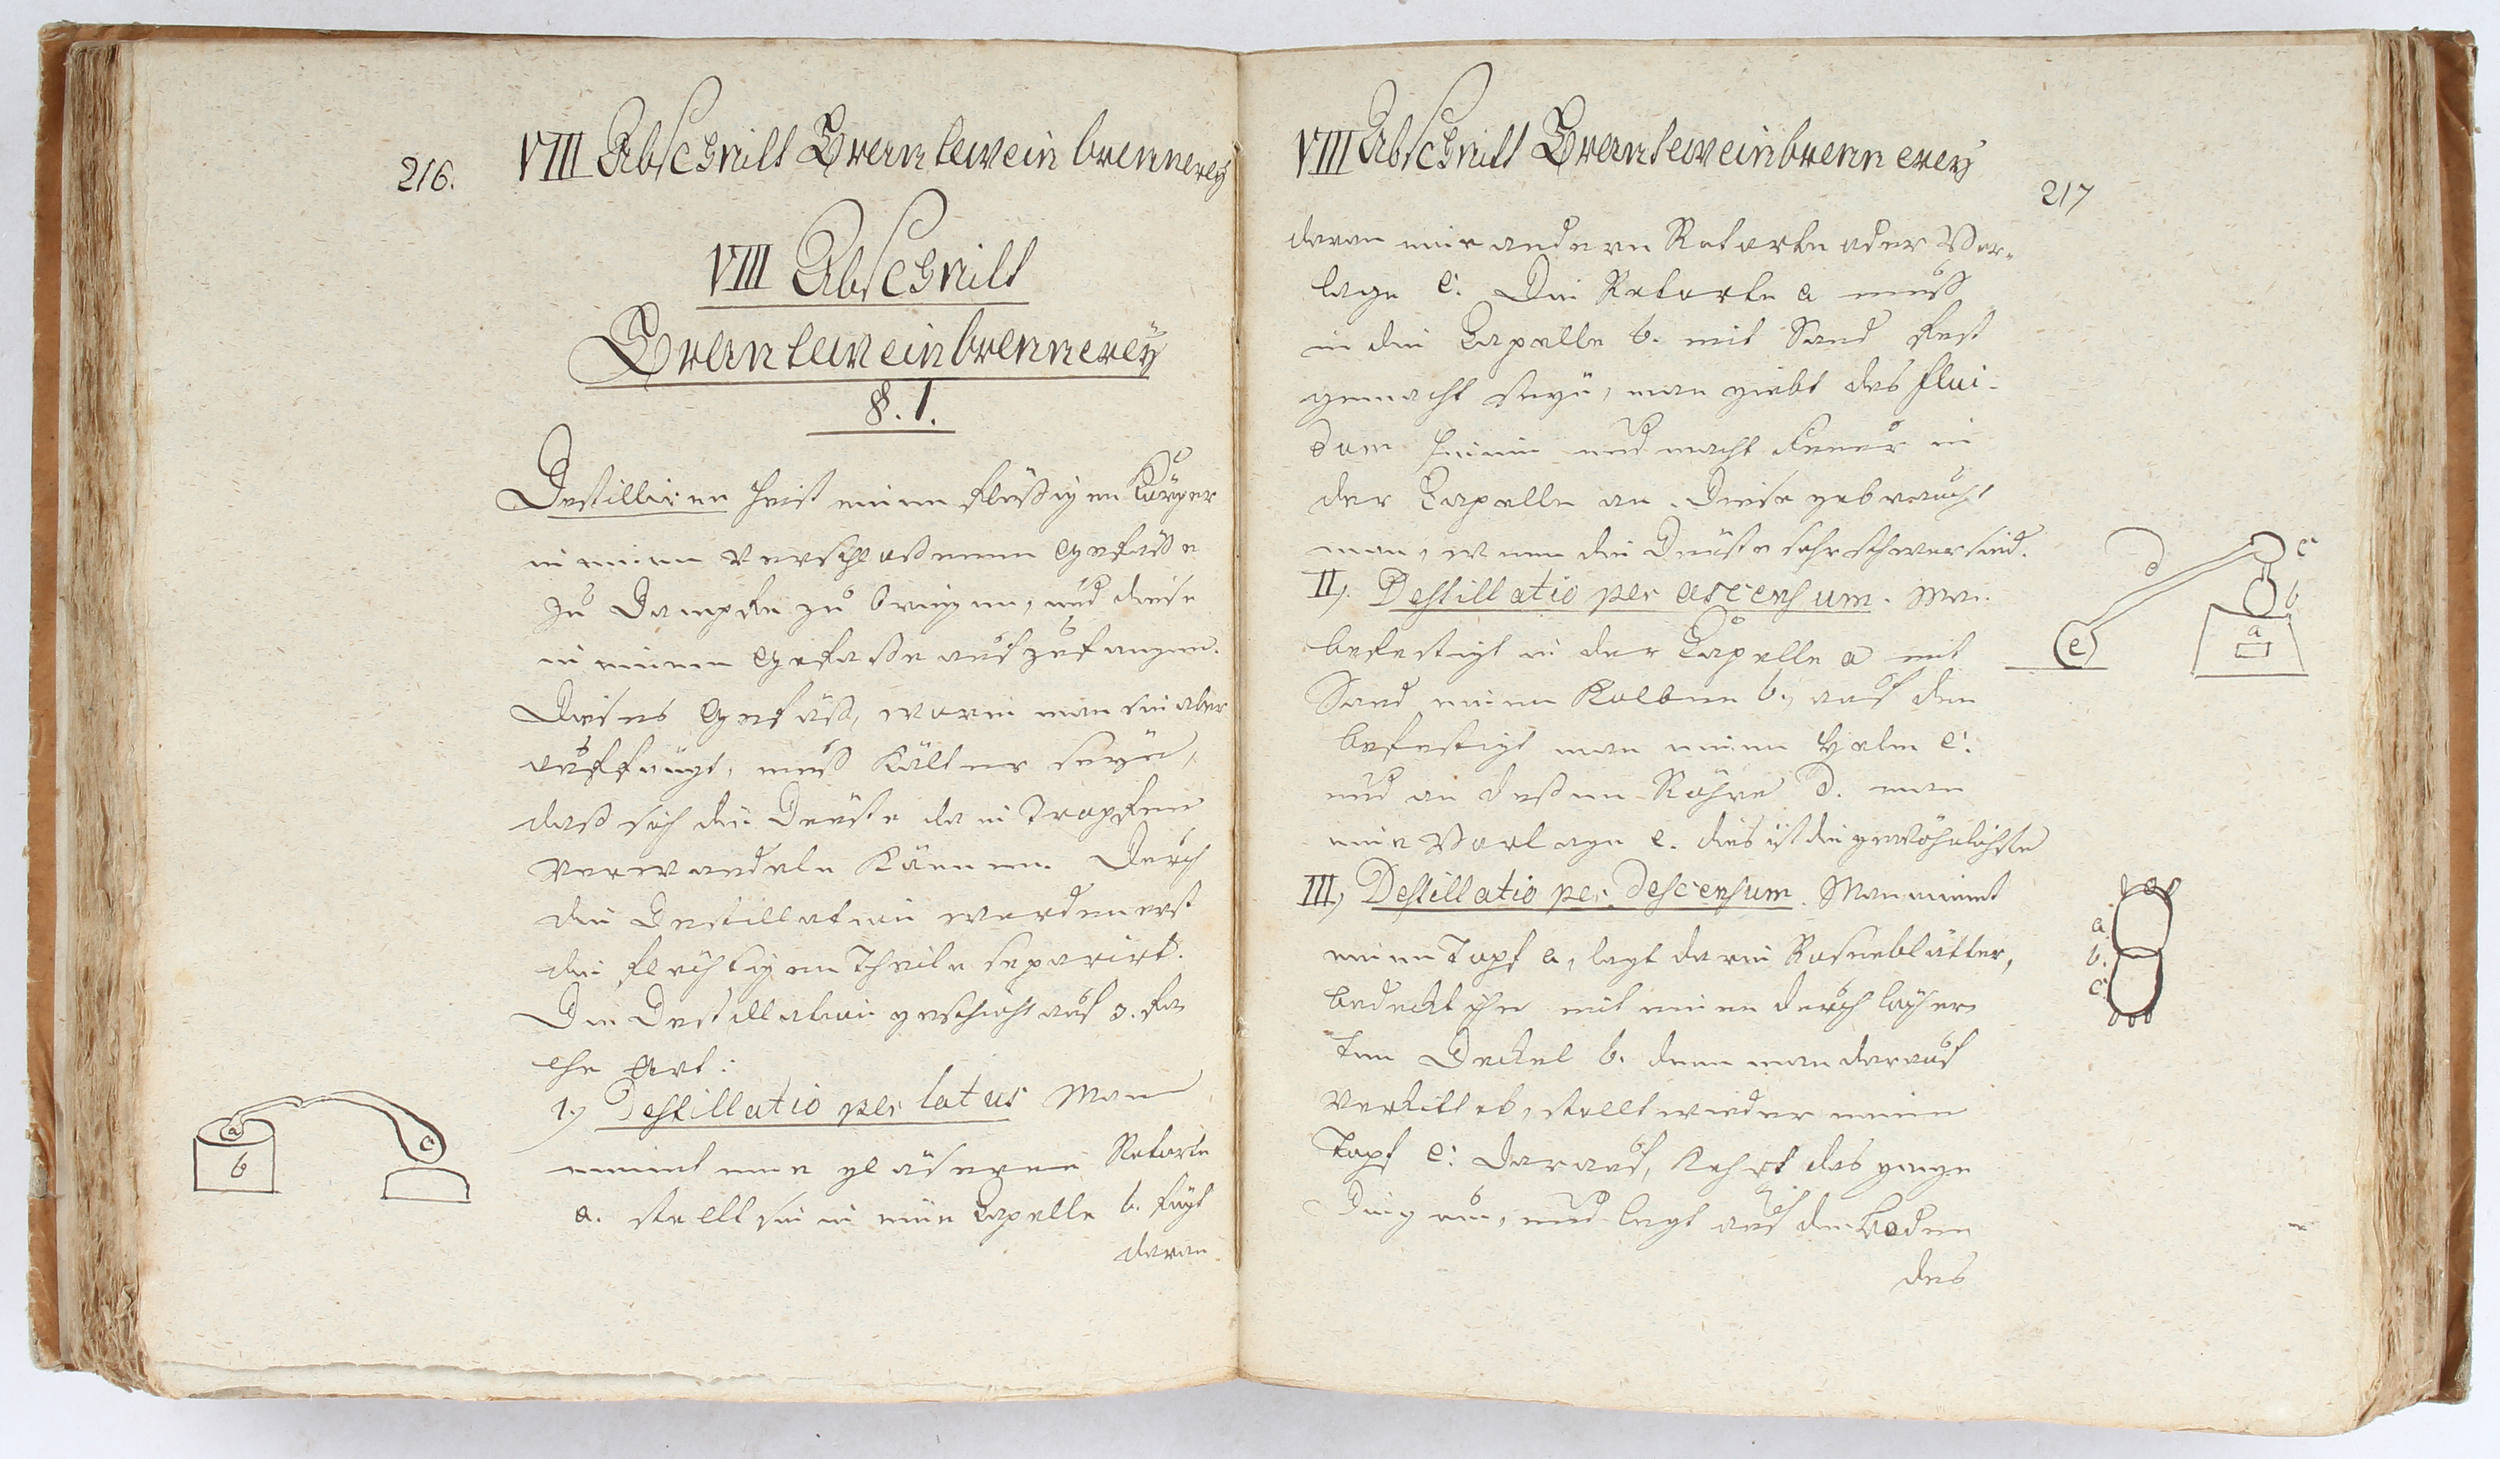 216.
VIII Abschnitt Brantewein brennerey
VIII Abschnitt
Branteweinbrennereÿ
§. 1.
Destilliren heist einen flüßigen Körper
in einem verschloßenen Gefäße
zu Dampfe zu bringen, und diese
in einem Gefaße aufzufangen.
Dieses Gefäß, worin man sie aber
auffängt, muß kälter seyn,
daß sich die Dünste da in Tropfen
verwandeln können. Durch
die Destillation werden erst
die flüchtigen Theile separirt.
Die Destillation geschieht auf 3. fa
che Art:
1.) Destillatio per latus Man
nimt eine gläserne Retorte
a. stellt sie in eine Capelle b. fügt
daran
a
b
c
VIII Abschnitt Branteweinbrennerey
217
daran eine andere Retorte oder Vor-
lage c. Die Retorte a muß
in die Capelle b. mit Sand fest
gemacht seyn, man giebt das flui-
dum hinein und macht Feuer in
der Capelle an. Diese gebraucht
man, wenn die Dünste sehr schwer sind.
II). Destillatio per ascensum. Man
befestigt in der Capelle a mit
Sand einen Kolben b., auf den
befestigt man einen Helm c.
und an deßen Röhre d. man
eine Vorlage e. dies ist die gewöhnlichste
III.) Destillatio per descensum. Man nimt
einen Topf a, legt darin Rosenblätter,
bedeckt ihn mit einen durchlöcher
ten Deckel b. denn man darauf
verkittet, stellt wieder einen
Topf c. darauf, kehrt das ganze
Ding um, und legt auf den Boden
des
d
c
b
a
e
a
b.
c